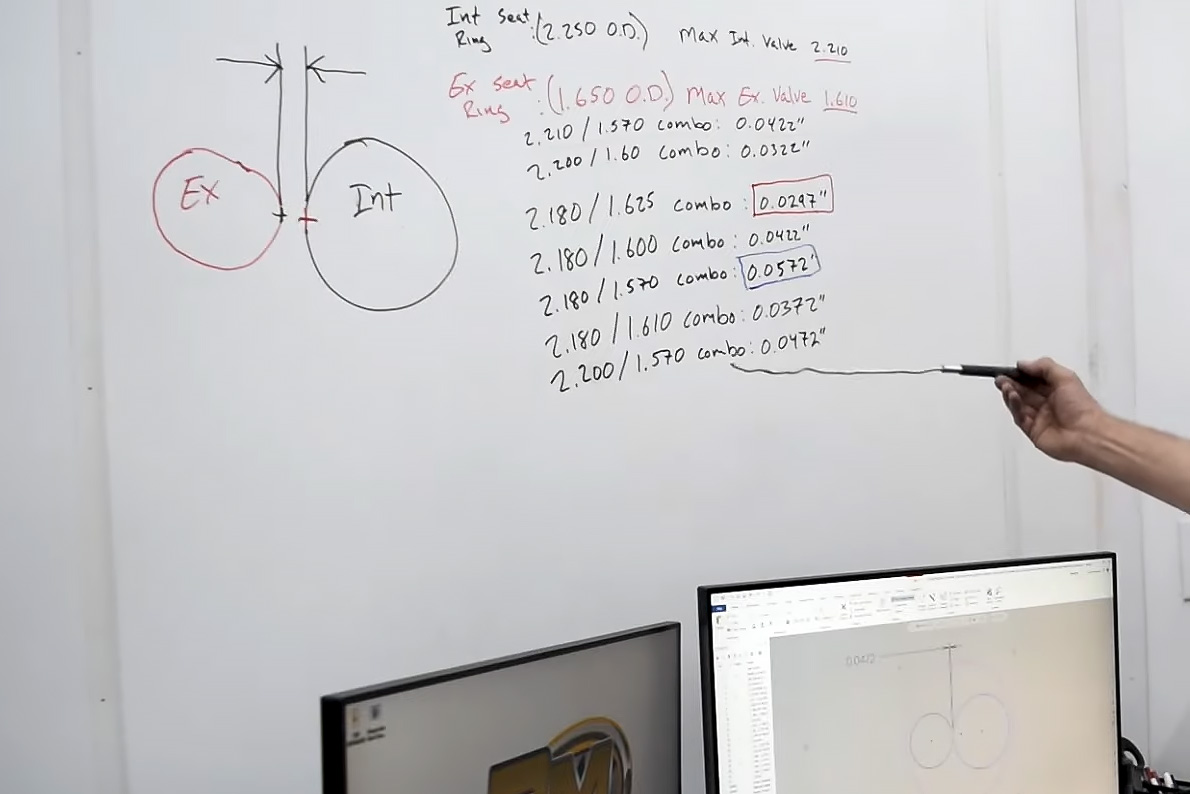 Int Seat Ring :(2.250 O.D.) Max Int. Valve 2.210
Ex Seat Ring :(1.650 O.D.) Max Ex. Valve 1.610
2.210 / 1.570 combo: 0.0422"
2.200 / 1.60 combo: 0.0322"
2.180 / 1.625 combo : 0.0297"
2.180 / 1.600 combo : 0.0422"
2.180 / 1.570 combo: 0.0572"
2.180 / 1.610 combo: 0.0372"
2.200 / 1.570 combo: 0.0472"
Ex
Int